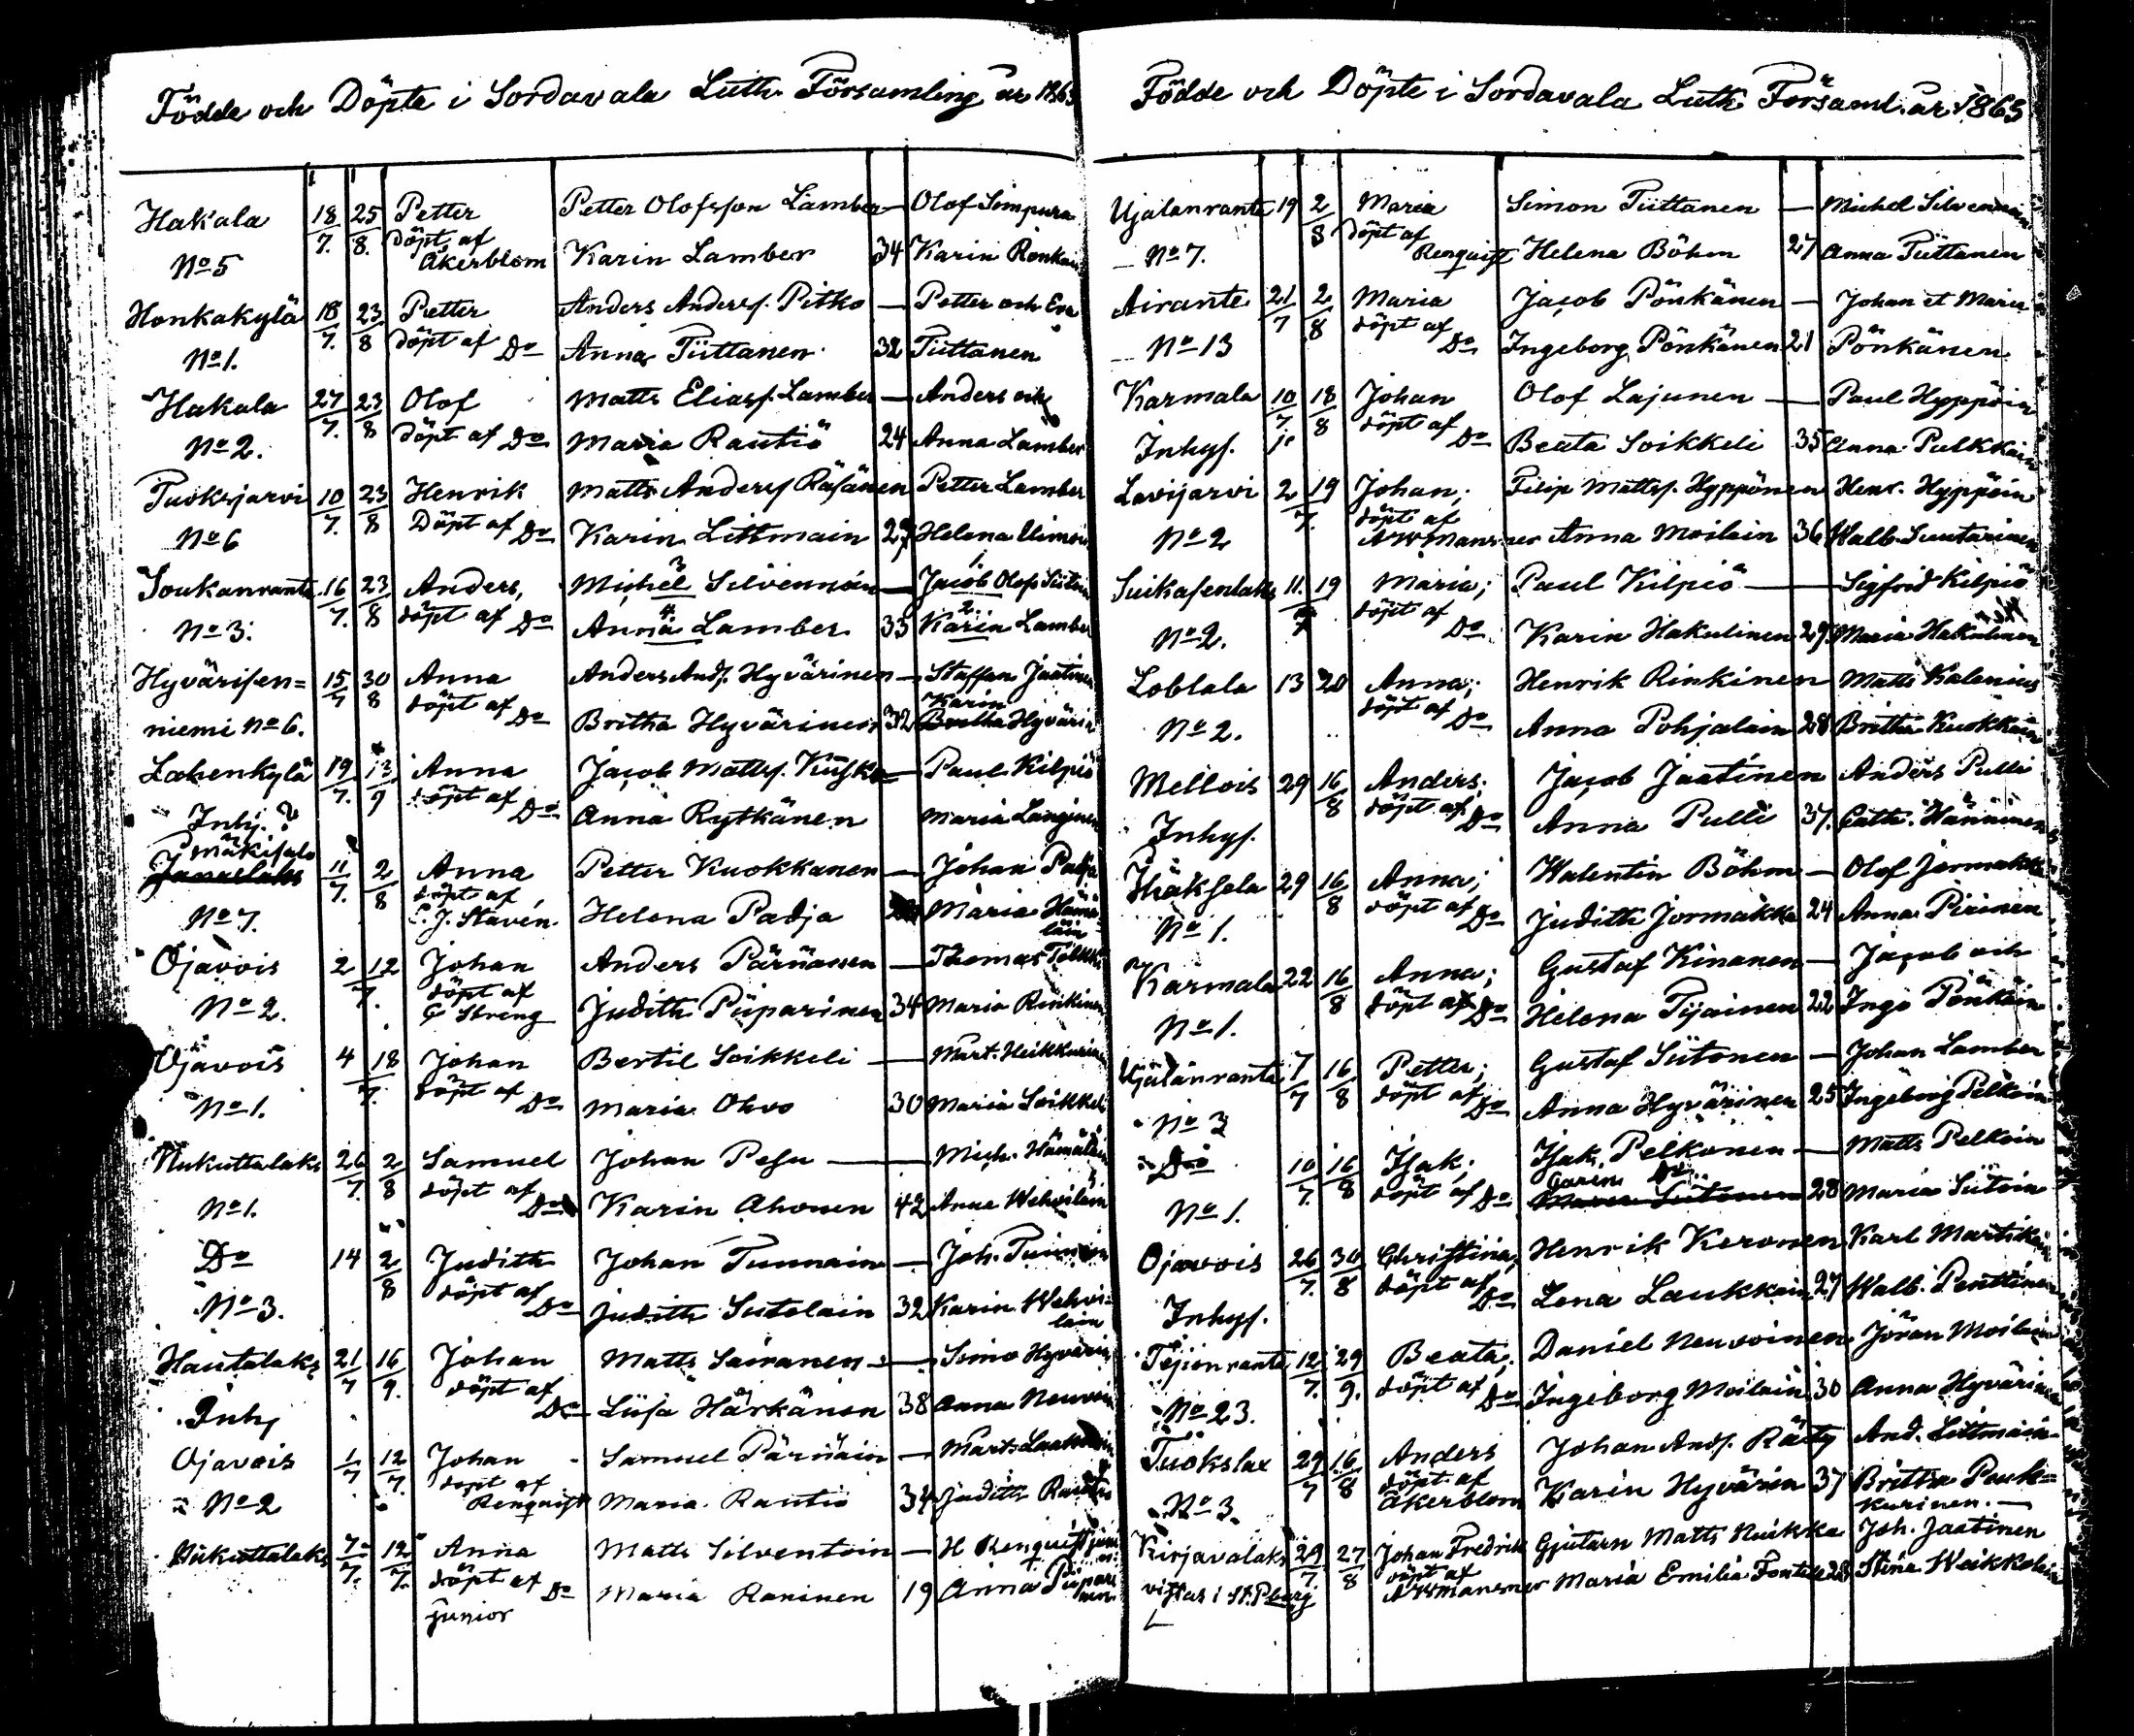 Födde och Döpte i Sordavala Luth. Församling år 1863
Hakala 18/7. 25/8. Petter Petter Olofsson Lamber — Olof Simpura
No 5 döpt af Åkerblom Karin Lamber 34 Karin Ronkain
Honkakylä 18/7. 23/8 Petter Anders Anderss. Pitko — Petter och Eva
No 1. döpt af Do Anna Tiittanen 32 Tiittanen
Hakala 27/7. 23/8 Olof Matts Eliass. Lamber — Anders och
No 2. döpt af Do Maria Rautio 24 Anna Lamber
Tuoksjarvi 10/7. 23/8 Henrik Matts Anderss Räsänen Petter Lamber
No 6 Döpt af Do Karin Littmain 29 Helena
Soukanranta 16/7. 23/8 Anders, Michel Silvennoin — Jacob Olofs Siitoin
No 3. döpt af Do Anna Lamber 35 Karin Lamber
Hyvärisen= 15/7 30/8 Anna Anders Ands. Hyvärinen — Staffan Jaatinen
niemi No 6. döpt af Do Britha Hyvärinen 32 Karin Hyvärin
Lahenkylä 19/7. 13/9 Anna Jacob Matts. — Paul Kilpiö
Inhj. ? döpt af Do Anna Rytkänen Maria Langinen
mäkisalo
11/7. 2/8 Anna Petter Kuokkanen — Johan Padja
No 7. döpt af C. J. Slavén. Helena Padja Maria Hämä=
läin
Ojavois 2 12/7. Johan Anders Pärnänen — Thomas Tolkki
No 2. döpt af G Streng Judith Piiparinen 34 Maria Rinkinen
Ojavois 4 18/7. Johan Bertil Soikkeli — Mart. Heikkurin
No 1. döpt af Do Maria Ohvo 30 Maria Soikkeli
Nukuttalaks 26/7. 2/8 Samuel Johan Pesu — Mich. Hämäläin
No 1. döpt af Do Karin Ahonen 42 Anna Wehviläin
Do 14 2/8 Judith Johan Tunnain — Joh.
No 3. döpt af Do Judith Sutelain 32 Karin Wehvi=
läin
Hautalaks 21/7 16/9. Johan Matts Sairanen — Simo Hyvärin
Inhj döpt af Do Liisa Härkänen 38 Anna Neuvoin
Ojavois 1/7 12/7. Johan Samuel Pärnäin — Marts
No 2 döpt af Renquist Maria Rautio 34 Judith Rautio
Nukuttalaks 7/7. 12/7. Anna Matts Silventoin — H Renquist
döpt af Do Maria Raninen 19 Anna
junior
Födde och Döpte i Sordavala Luth. Församl. år 1863
Ujalanranta 19 2/8 Maria Simon Tiittanen — Michel Silvennoin
No 7. döpt af Renquist Helena Böhm 27 Anna Tiittanen
Airante 21/7 2/8 Maria Jacob Pönkänen — Johan et Maria
No 13 döpt af Do Ingeborg Pönkänen 21 Pönkänen
Karmala 10/7 18/8 Johan Olof Lajunen — Paul Hyppöin
Inhys. döpt af Do Beata Soikkeli 35 Anna Pulkkain
Lavijarvi 2 19/7. Johan; Filip Mattss. Hyppönen Henr. Hyppöin
No 2 döpt af A W Mansner Anna Moilain 36 Walb. Suutarinen
Suikasenlaks 11. 19/7 Maria; Paul Kilpiö — Sigfrid Kilpiö
No 2. döpt af Do Karin Hakulinen 29 Maria Hakulinen
Loblala 13 20 Anna; Henrik Rinkinen Matts Kalenius
No 2. döpt af Do Anna Pohjalain 28 Britha Kuokkain
Mellois 29 16/8 Anders; Jacob Jaatinen Anders Pulli
Inhys. döpt af Do Anna Pulli 37. Cath. Hänninen
Häksela 29 16/8 Anna; Walentin Böhm — Olof Jormakka
No 1. döpt af Do Judith Jormakka 24 Anna Pirinen
Karmala 22 16/8 Anna; Gustaf Kinanen — Jacob och
No 1. döpt af Do Helena Tijainen 22 Inge Pönkäin
Ujalanranta 7/7 16/8 Petter; Gustaf Siitonen — Johan Lamber
No 3 döpt af Do Anna Hyvärinen 25 Ingeborg Pelkoin
Do 10/7. 16/8 Isak; Isak Pelkonen — Matts Pelkoin
No 1. döpt af Do Caren Do 28 Maria Siitoin
Ojavois 26/7. 30/8 Christina; Henrik Keronen Karl Martikain
Inhys. döpt af Do Lena Laukkain 27 Walb. Penttinen
12/7. 29/9. Beata; Daniel Neuvoinen Jöran Moilain
No 23. döpt af Do Ingeborg Moilain 30 Anna Hyvärinen
Tuokslax 29/7 16/8 Anders Johan Ands. Räty And. Littmain
No 3. döpt af Åkerblom Karin Hyvärin 37 Britha Pauk=
kurinen. —
Kirjavalaks 29/7. 27/8 Johan Fredrik Gjutarn Matts Huikka Joh. Jaatinen
vistas i St. Pburg döpt af A W Mansner Maria Emilia 28 Stina Weikkolain